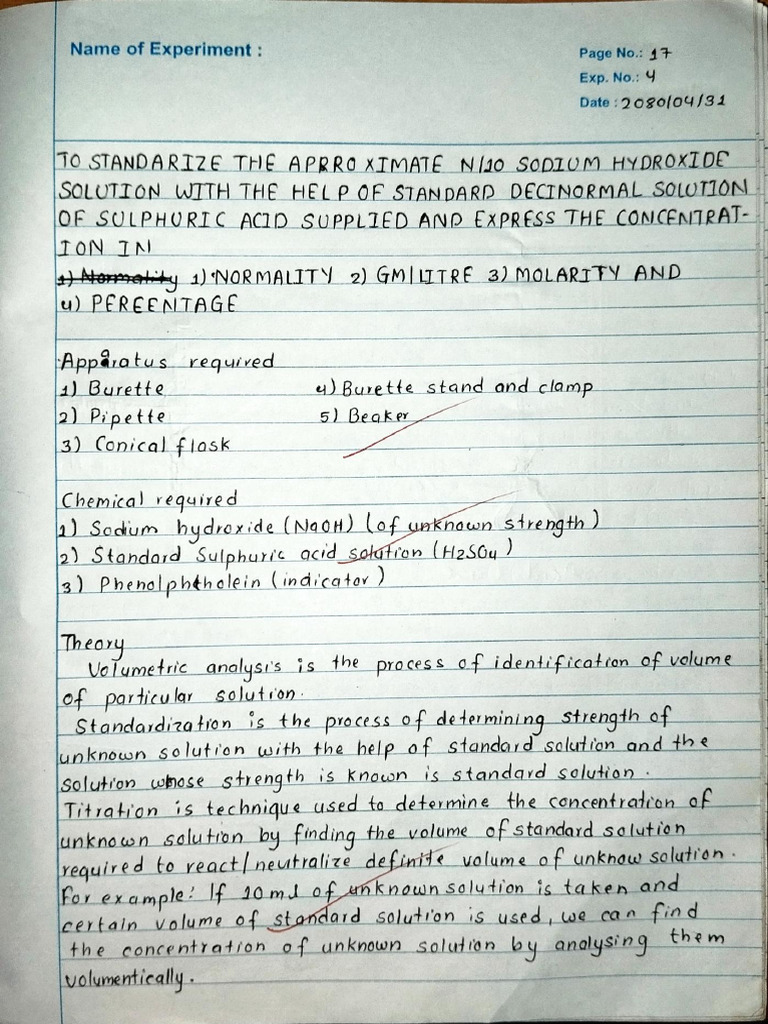 Name of Experiment :
Page No.: 17
Exp. No.: 4
Date : 2080/04/31
TO STANDARIZE THE APRRO XIMATE N/10 SODIUM HYDROXIDE
SOLUTION WITH THE HELP OF STANDARD DECINORMAL SOLUTION
OF SULPHURIC ACID SUPPLIED AND EXPRESS THE CONCENTRAT-
ION IN
1) Normality 1) NORMALITY 2) GM/LITRE 3) MOLARITY AND
4) PEREENTAGE
Apparatus required
1) Burette 4) Burette stand and clamp
2) Pipette 5) Beaker
3) Conical flask
Chemical required
1) Sodium hydroxide (NaOH) (of unknown strength)
2) Standard Sulphuric acid solution (H2SO4)
3) Phenolphtholein (indicator)
Theory
Volumetric analysis is the process of identification of volume
of particular solution.
Standardization is the process of determining strength of
unknown solution with the help of standard solution and the
solution whose strength is known is standard solution.
Titration is technique used to determine the concentration of
unknown solution by finding the volume of standard solution
required to react/neutralize definite volume of unknow solution.
For example: If 10 ml of unknown solution is taken and
certain volume of standard solution is used, we can find
the concentration of unknown solution by analysing them
volumentically.